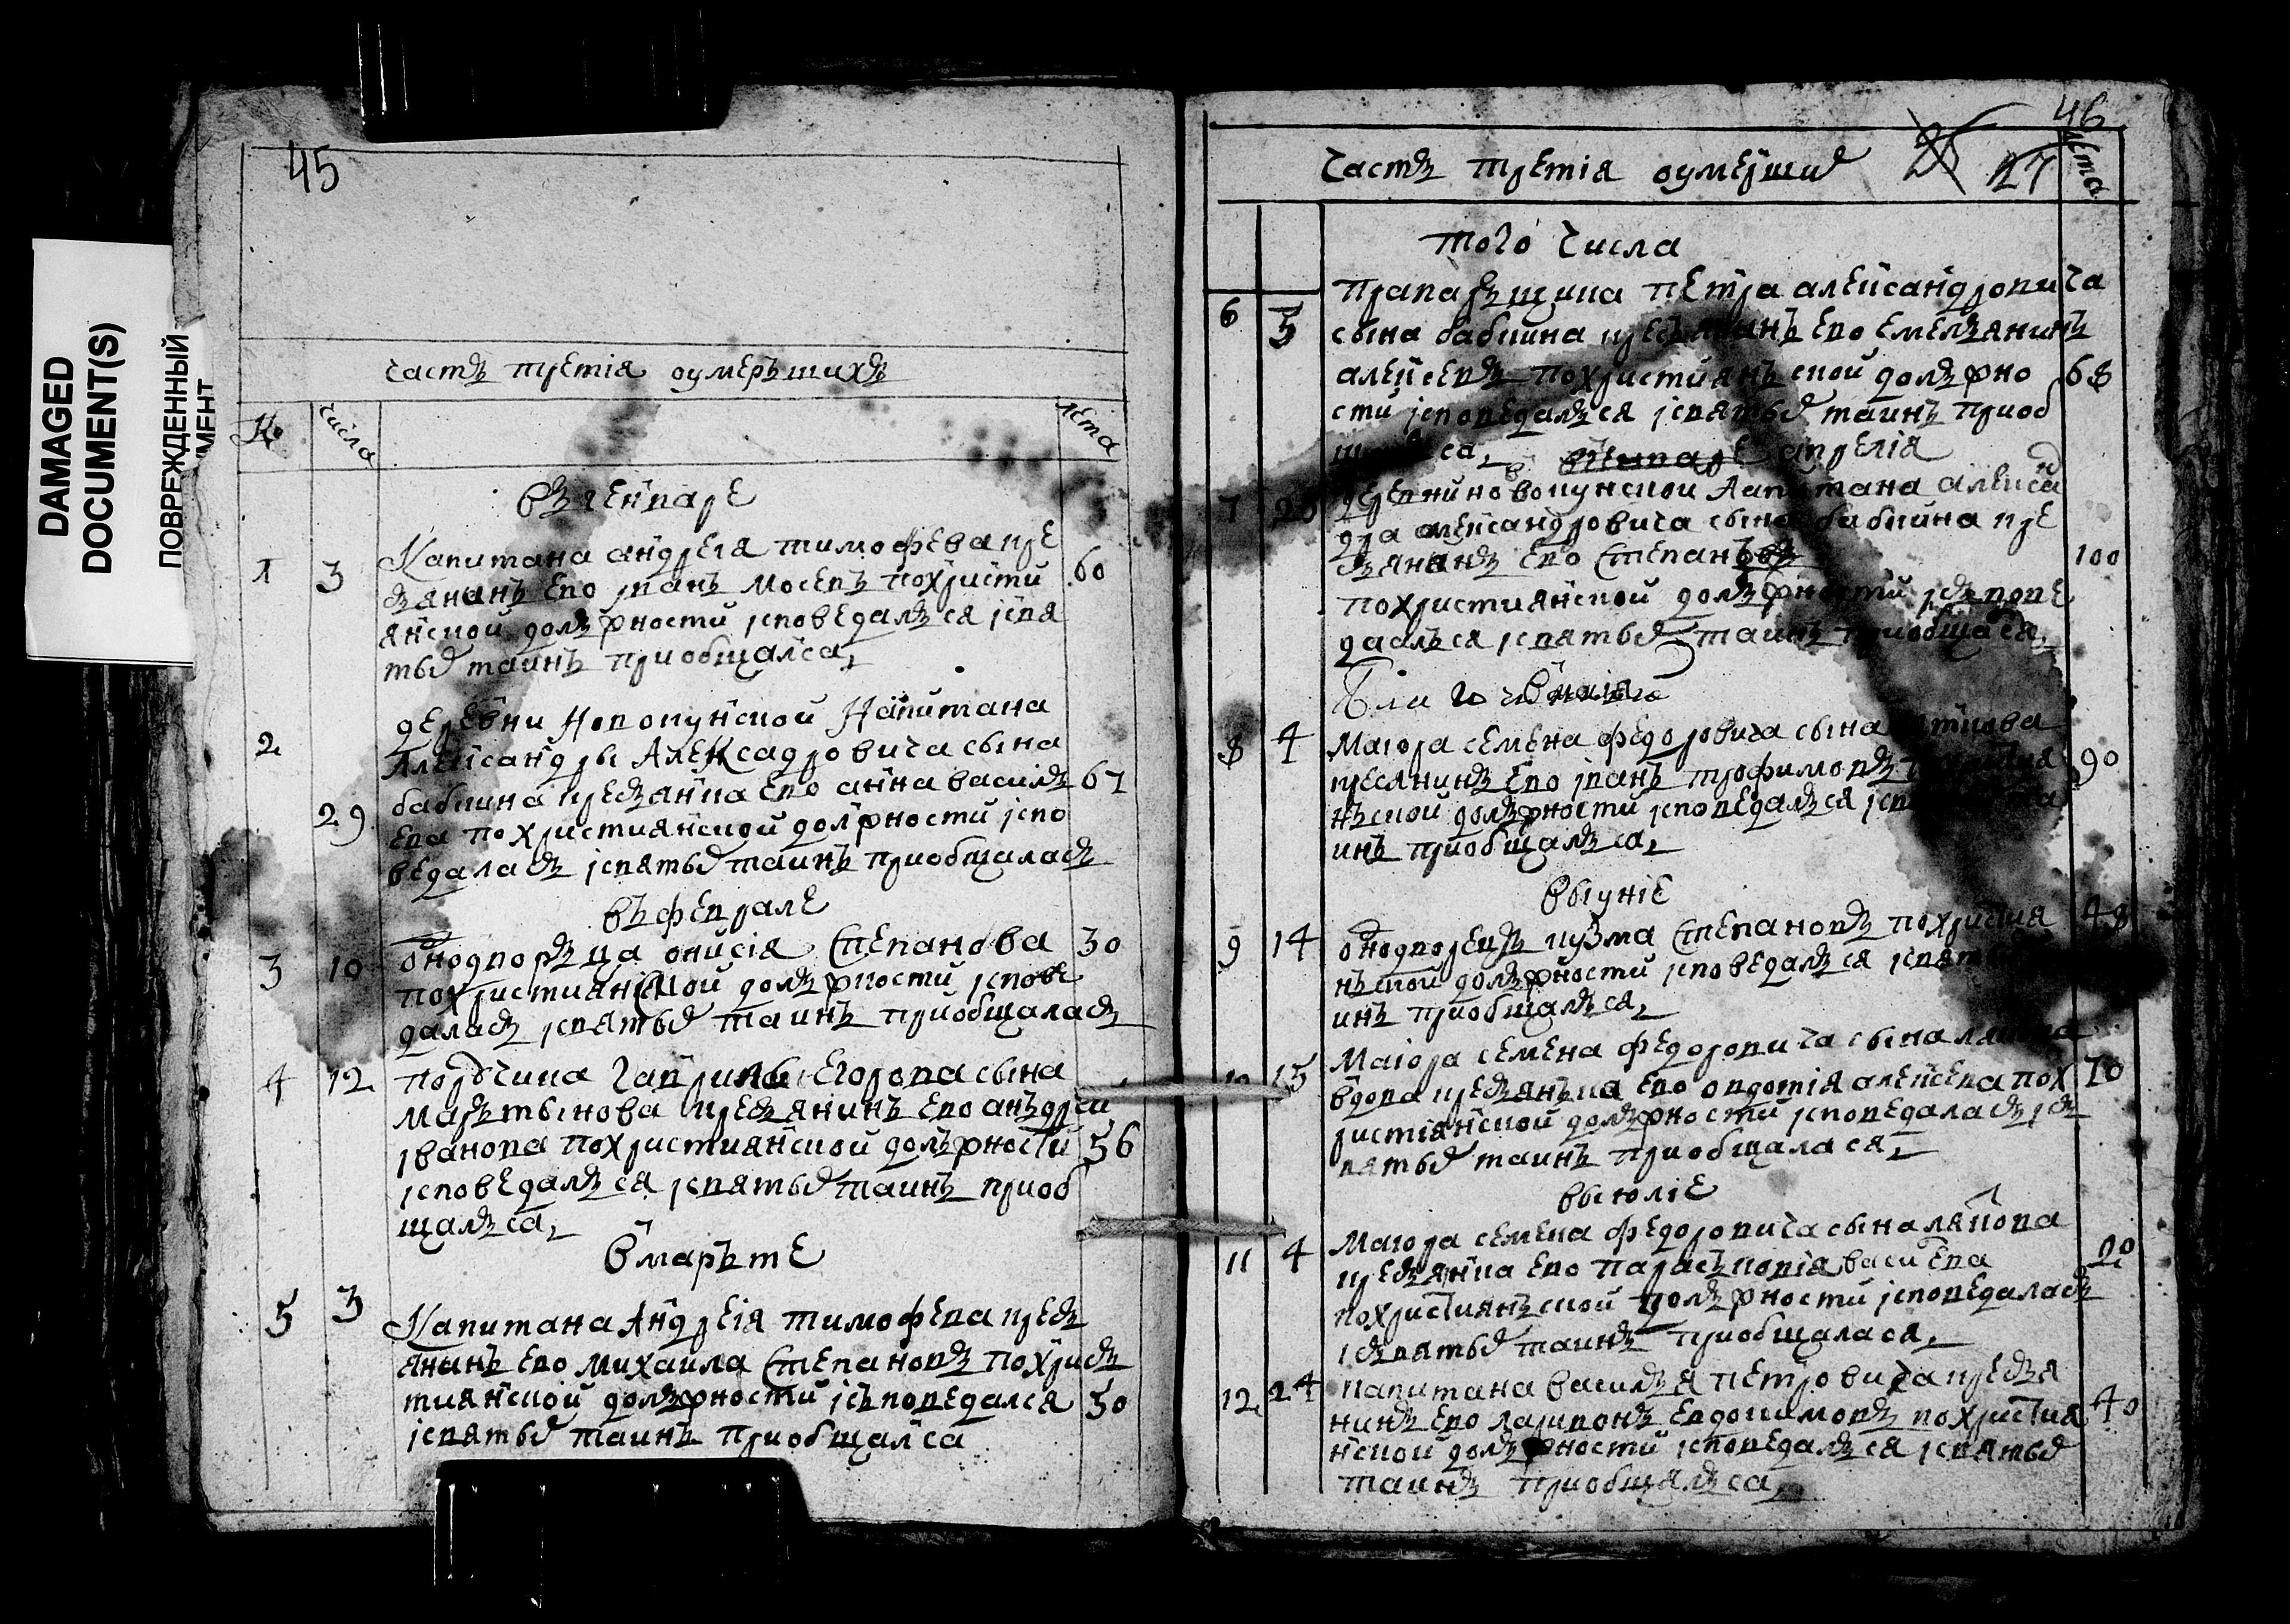 DAMAGED
DOCUMENT(S)
ПОВРЕЖДЕННЫЙ
МЕНТ
45
часть третія оумеръшихъ
№
числа
лета
въ генваре
1 3 Капитана андрегя тимофева кре
сьянинъ ево иванъ мосевъ похристи 60
янской должности исповедался исвя
тых таинъ приобщался
деревни новокунской Капитана
2 Александры Алексадровича сына
бабкина кресьянка ево анна василь 67
29 ева похристиянской должности испо
ведалась исвятых таинъ приобщалась
въ феврале
3 10 однодворъца онисія Степанова 30
похристиянской должности испове
далась исвятых таинъ приобщалась
4 12 порутчика Гаврилы Егорова сына
марътынова кресьянинъ ево анъдреи
иванова похристиянской должности 56
исповедался исвятых таинъ приоб
щался
в маръте
5 3 Капитана Андреія тимофева кресь
янинъ ево михаила Степановъ похрись
тиянской должности исъповедался 50
исвятых таинъ приобщался
46
часть третія оумерших
27
лета
того числа
6 3 прапаръщика петра александровича
сына бабкина кресьянинъ ево емельянинъ
алексевъ похристиянъской должно 68
сти исповедался исвятых таинъ приоб
щался
апрелія
7 деревни новокунской Капитана алекса
дра александровича сына бабкина кре
сьянинъ ево Степанъ 100
похристиянской должности исьпове
дался исвятых таинъ приобщался
8 4 Маиора семена федоровича сына
кресянинъ ево иванъ трофимовъ 90
нъской должности исповедался
инъ приобщался
выуніе
9 14 однодворецъ кузма Степановъ похристия 48
нъской должности исповедался исвятых
инъ приобщался
15 Маиора семена федоровича сына
вдова кресьянъка ево овдотія алексева пох 70
ристіянской должности исповедалась ись
вятых таинъ приобщалася
выюліе
11 4 Маиора семена федоровича сына ляпова
кресьянка ево парасъковія васиева 20
похристиянъской должности исповедалась
исьвятых таинъ приобщалася
12 24 капитана василья петровича кресья
нинъ ево ларивонъ евдокимовъ похристия 40
нской должности исповедался исвятых
таинъ приобщался